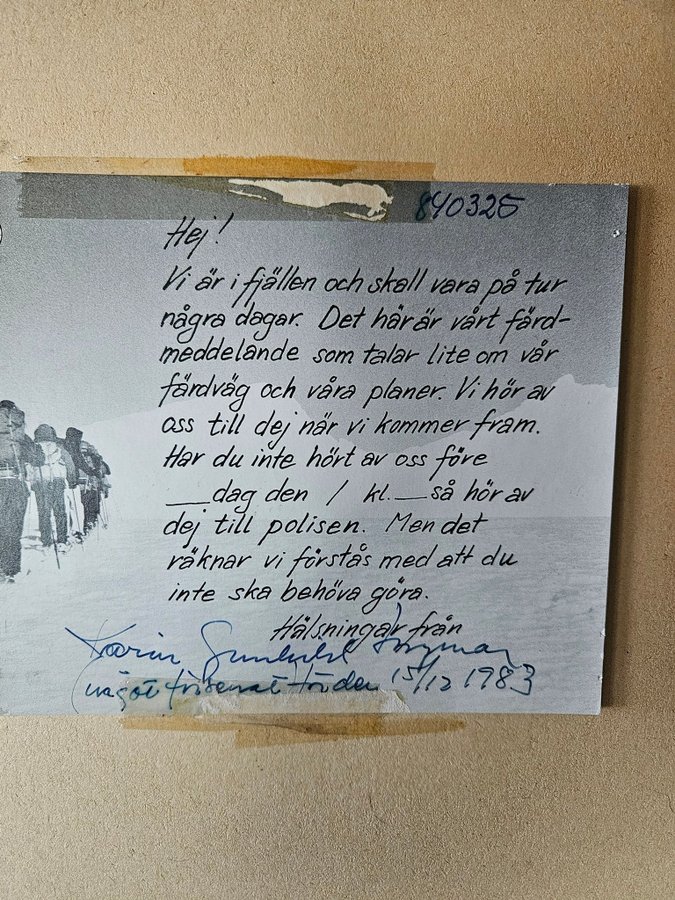 840325
Hej!
Vi är i fjällen och skall vara på tur
några dagar. Det här är vårt färd-
meddelande som talar lite om vår
färdväg och våra planer. Vi hör av
oss till dej när vi kommer fram.
Har du inte hört av oss före
__dag den / kl.__så hör av
dej till polisen. Men det
räknar vi förstås med att du
inte ska behöva göra.
Hälsningar från
Karin
något försenat 15/12 1983